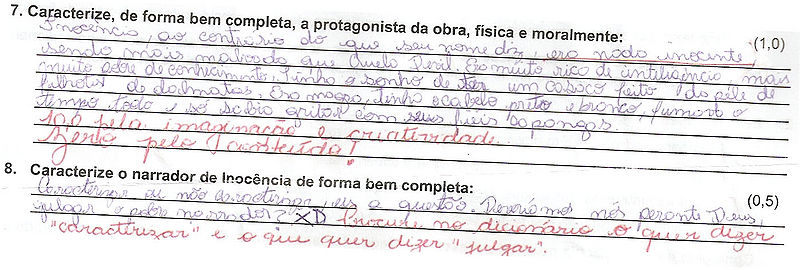 7. Caracterize, de forma bem completa, a protagonista da obra, física e moralmente:
(1,0)
Inocência, ao contrário do que seu nome diz, era nada inocente,
sendo mais malvada que Cruela Devil. Era muito rica de inteligência, mais
muito pobre de conhecimento. Tinha o sonho de ter um casaco feito da pele de
filhotes de dalmatas. Era magra, tinha o cabelo preto e branco, fumava o
tempo todo e só sabia gritar com seus fiéis capangas.
100 pela imaginação e criatividade.
Zero pelo conteúdo!
8. Caracterize o narrador de Inocência de forma bem completa:
(0,5)
Caracterizar ou não caracterizar, eis a questão. Devemos nós perante Deus,
julgar o pobre narrador? XD Procure no dicionário o quer dizer
"caracterizar" e o que quer dizer "julgar".